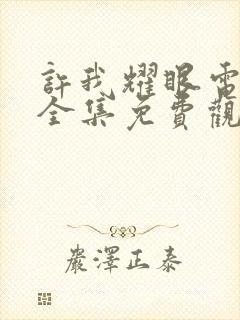 許我耀眼電
全集免費觀
嚴澤正泰